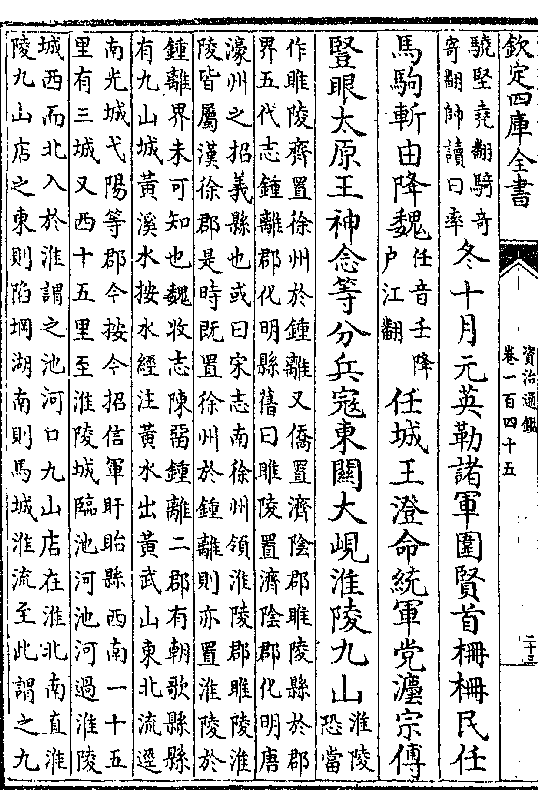 欽定四庫全書
資治通鑑
卷一百四十五
二十三
驍堅堯翻騎奇
寄翻帥讀曰率
冬十月元英勒諸軍圍賢首柵柵民任
馬駒斬由降魏
任音壬降
户江翻
任城王澄命統軍党灋宗傅
豎眼太原王神念等分兵寇東關大峴淮陵九山
淮陵
恐當
作睢陵齊置徐州於鍾離又僑置濟陰郡睢陵縣於郡
界五代志鍾離郡化明縣舊曰睢陵置濟陰郡化明唐
濠州之招義縣也或曰宋志南徐州領淮陵郡睢陵淮
陵皆屬漢徐郡是時既置徐州於鍾離則亦置淮陵於
鍾離界未可知也魏收志陳留鍾離二郡有朝歌縣縣
有九山城黃溪水按水經注黃水出黃武山東北流逕
南光城弋陽等郡今按今招信軍盱眙縣西南一十五
里有三城又西十五里至淮陵城臨池河池河過淮陵
城西而北入於淮謂之池河口九山店在淮北南直淮
陵九山店之東則陷堈湖南則馬城淮流至此謂之九